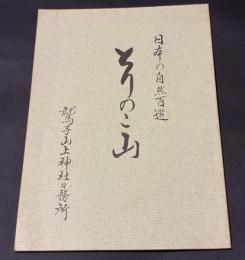 日本の自然百選
とりのこ山
鷲子山上神社々務所